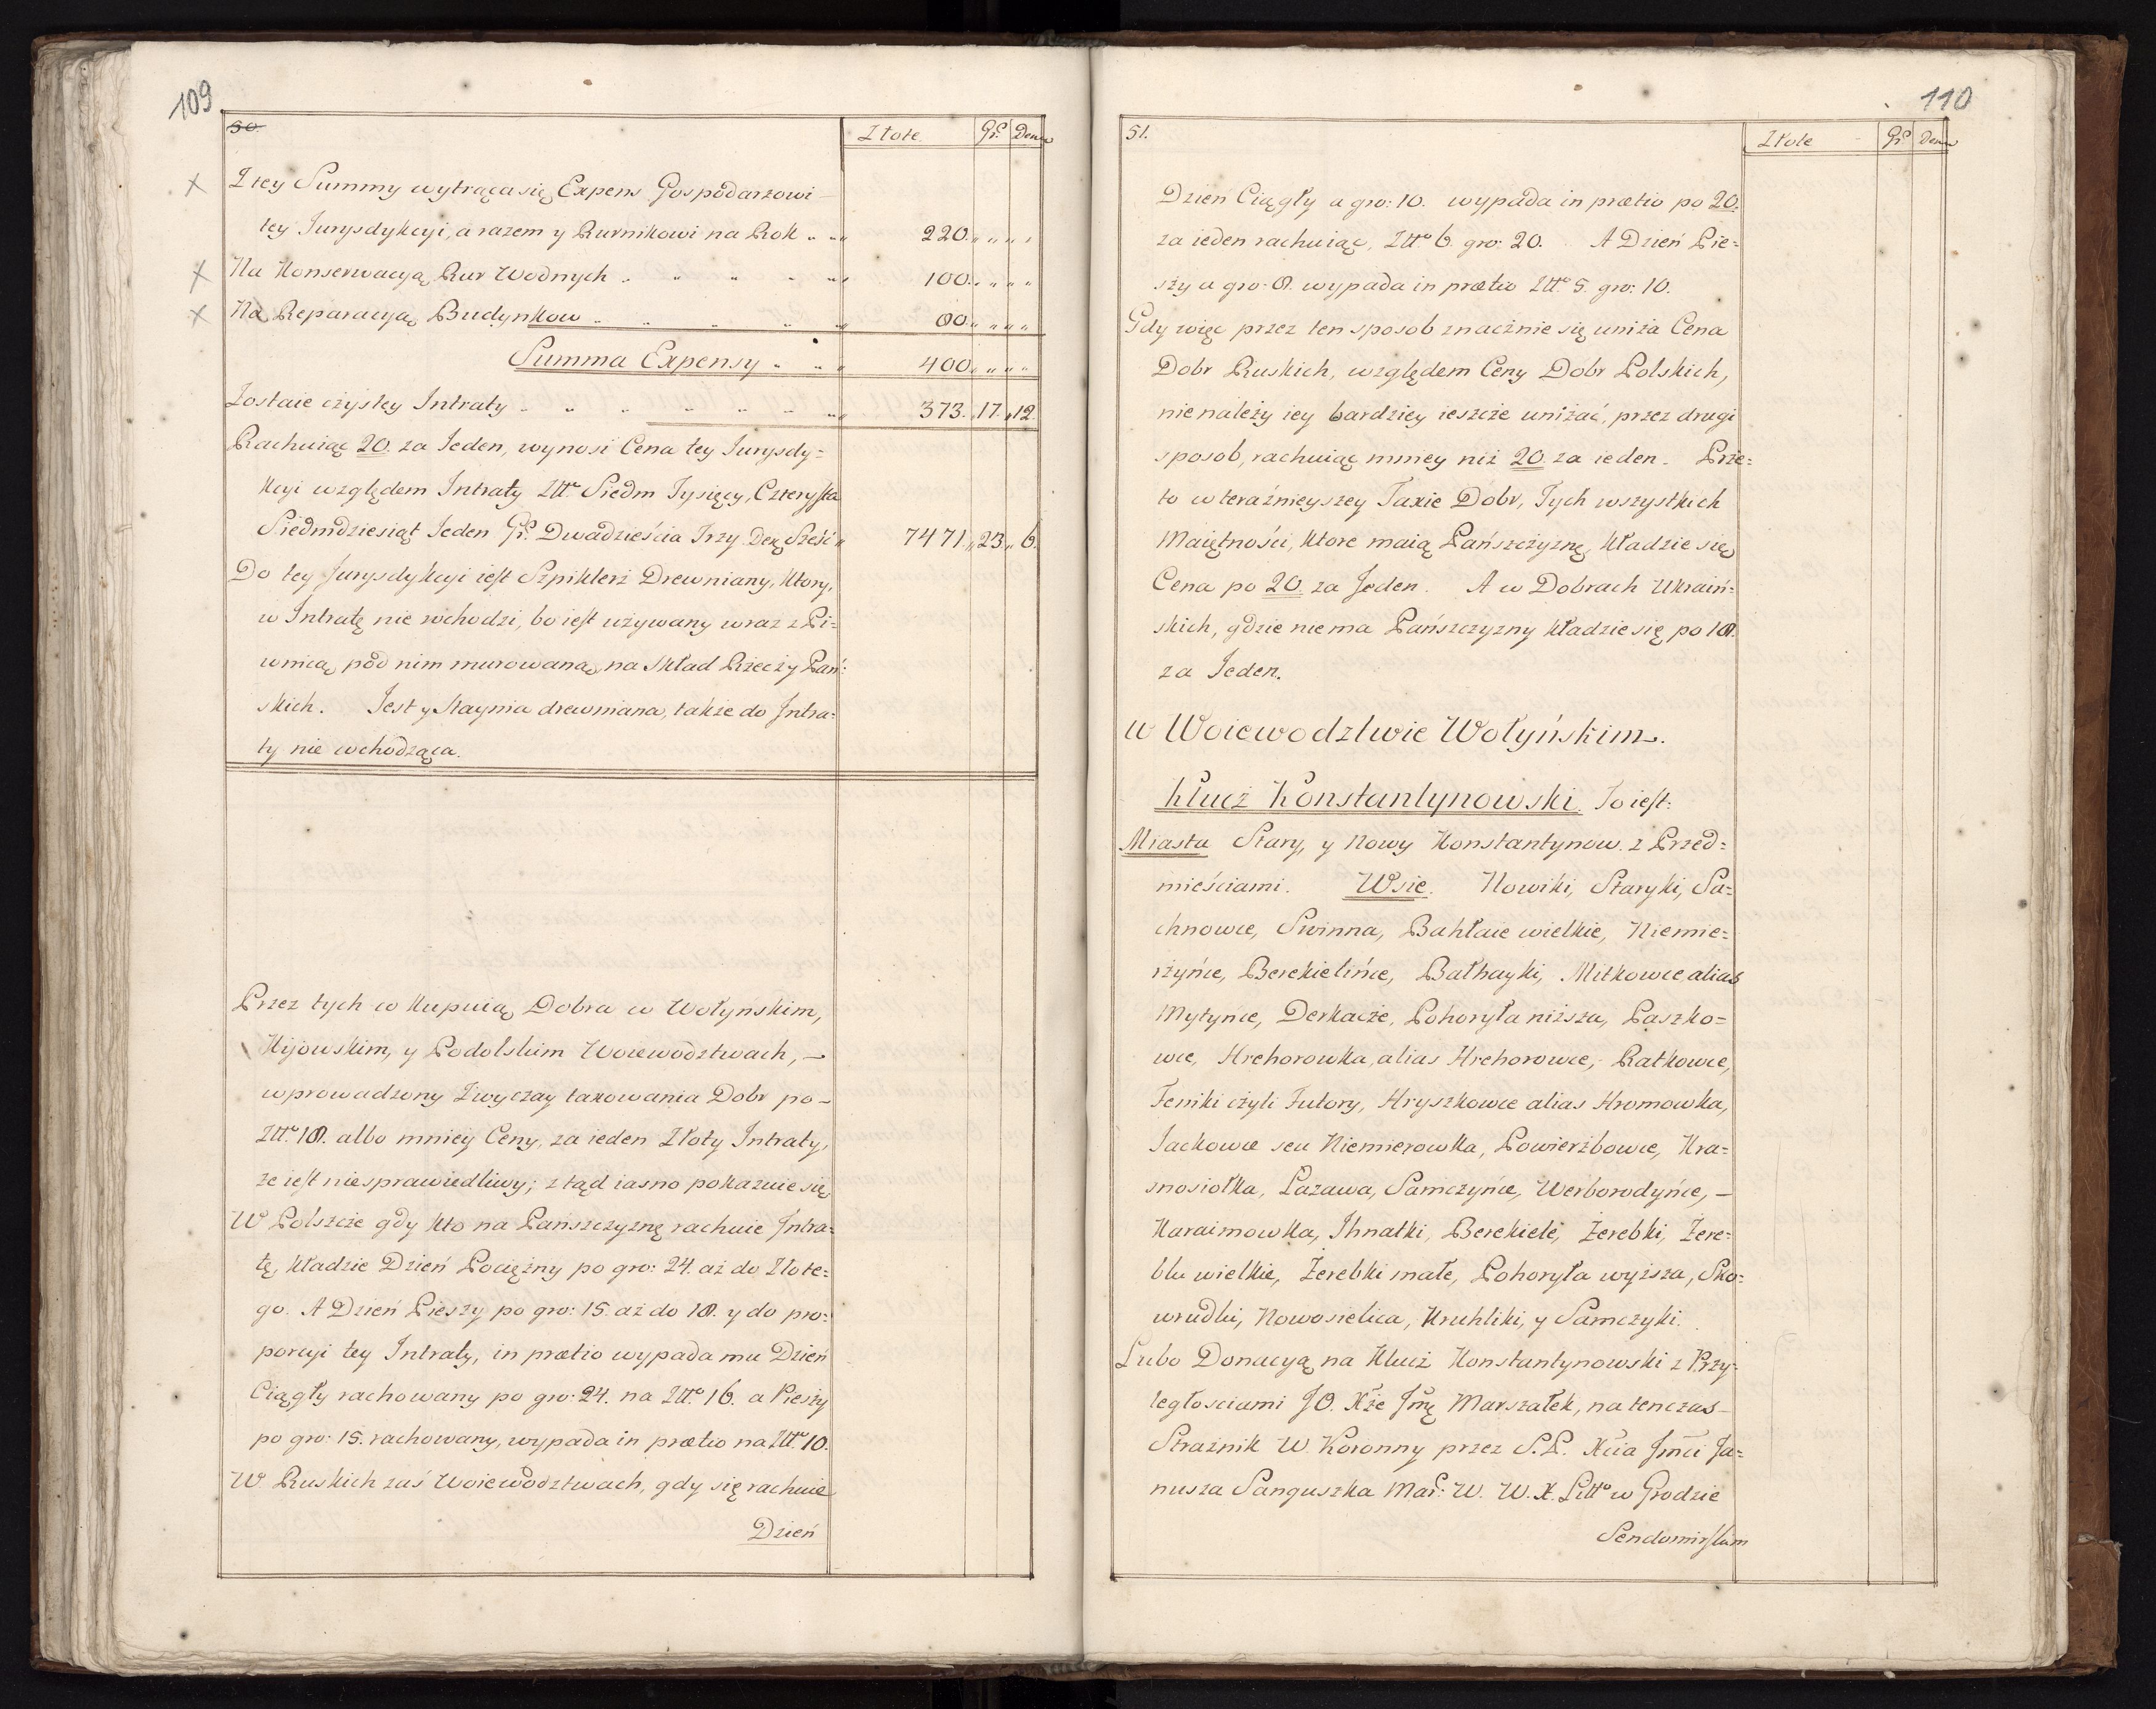 109
50.
Złote. Gr. Den.
Z tey Summy wytrąca się Expens Gospodarzowi
tey Jurysdykcyi, a razem y Rurnikowi na Rok 220.
Na Konserwacyą Rur Wodnych 100.
Na Reparacyą Budynkow 80.
Summa Expensy 400.
Zostaie czystey Intraty 373. 17. 12
Rachuiąc 20. za Jeden, wynosi Cena tey Jurysdy=
kcyi względem Intraty Złt. Siedm Tysięcy, Czterysta
Siedmdziesiąt Jeden Gr. Dwadzieścia Trzy Den. Sześć 7471. 23. 6.
Do tey Jurysdykcyi iest Szpiklerz Drewniany, ktory,
w Intratę nie wchodzi, bo iest używany wraz z Pi=
wnicą pod nim murowaną, na Skład Rzeczy Pań=
skich. Jest y Staynia drewniana, także do Intra=
ty nie wchodząca.
Przez tych co kupuią Dobra w Wołynskim,
Kijowskim, y Podolskim Woiewodztwach, –
wprowadzony Zwyczay taxowania Dobr po –
Złt. 18. albo mniey Ceny, za ieden Złoty Intraty,
że iest niesprawiedliwy; ztąd iasno pokazuie się
W Polszcze gdy kto na Pańszczyznę rachuie Intra=
tę, kładzie Dzień Pociężny po gro: 24. aż do Złote=
go. A Dzień Pieszy po gro: 15. aż do 18. y do pro=
porcyi tey Intraty, in prætio wypada mu Dzień
Ciągły rachowany po gro: 24. na Złt. 16. a Pieszy
po gro: 15. rachowany, wypada in prætio na Złt. 10.
W Ruskich zaś Woiewodztwach, gdy się rachuie
Dzień
110
51.
Złote Gr. Den.
Dzien Ciągły a gro: 10. wypada in prætio po 20.
za ieden rachuiąc, Złt. 6. gro: 20. A Dzień Pie=
szy a gro: 8. wypada in prætio Złt. 5. gro: 10.
Gdy więc przez ten sposob znacznie się uniża Cena
Dobr Ruskich, względem Ceny Dobr Polskich,
nie należy iey bardziey ieszcze uniżać, przez drugi
sposob, rachuiąc mniey niż 20. za ieden. Prze=
to w teraźnieyszey Taxie Dobr, Tych wszystkich
Maiętności, ktore maią Pańszczyznę, kładzie się
Cena po 20. za Jeden. A w Dobrach Ukraiń=
skich, gdzie niema Pańszczyzny kładzie się po 18.
za Jeden.
w Woiewodztwie Wołyńskim.
Klucż Konstantynowski. To iest:
Miasta Stary, y Nowy Konstantynow. z Przed=
mieściami. Wsie. Nowiki, Staryki, Sa=
chnowce, Swinna, Bahłaie wielkie, Niemie=
rżyńce, Berekielińce, Bałhayki, Mitkowce alias
Mytynce, Derkacże, Pohoryła niższa, Paszko=
wce, Hrehorowka, alias Hrehorowce, Ratkowce,
Feniki czyli Futory, Hryszkowce alias Hromowka,
Jackowce seu Niemierowka, Powierżbowce, Kra=
snosiołka, Łazawa, Samczyńce, Werborodyńce, –
Karaimowka, Ihnatki, Berekiele, Żerebki, Żere=
bki wielkie, Żerebki małe, Pohoryła wyższa, Sko=
wrudki, Nowosielica, Kruhliki, y Samczyki.
Lubo Donacyą na Klucz Konstantynowski z Przy=
ległosciami JO. Xże Jmę Marszałek, na tenczas
Strażnik W. Koronny przez S.P. Xcia Jmći Ja=
nusza Sanguszka Mar: W. W. X. Litt. w Grodzie
Sendomirskim